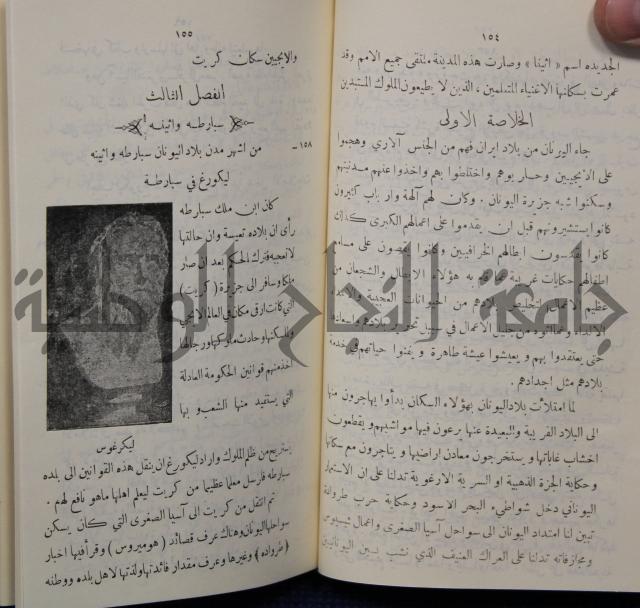 ١٥٤
الجديده اسم « اثينا » وصارت هذه المدينة ملتقى جميع الامم وقد
عمرت بسكانها الاغنياء المتعلمين ، الذين لا يطيعون الملوك المستبدين
الخلاصة الاولى
جاء اليونان من بلاد ايران فهم من الجنس الآري وهجموا
على الايجيين وحاربوهم واختلطوا بهم واخذوا عنهم مدنيتهم
وسكنوا شبه جزيرة اليونان . وكان لهم آلهة وارباب كثيرون
كانوا يستشيرونهم قبل ان يقدموا على اعمالهم الكبرى كذلك
كانوا يقدسون ابطالهم الخرافيين وكانوا يقصون على مسامع
اطفالهم حكايات غريبة قام به هؤلاء الابطال والشجعان من
عظيم الاعمال لتخليص بلادهم من الحيوانات العجيبة
من جليل الاعمال في سبيل بلادهم
حتى يعتقدوا بهم و يعيشوا عيشة طاهرة و يفنوا حياتهم في خدمة
بلادهم مثل اجدادهم .
لما امتلأت بلاد اليونان بهؤلاء السكان بدأوا يهاجرون منها
الى البلاد القريبة والبعيدة عنها يرعون فيها مواشيهم و يقطعون
اخشاب غاباتها و يستخرجون معادن اراضيها و يتاجرون مع سكانها
وحكاية الجزة الذهبية او السرية الارغوية تدلنا على ان الاستعمار
اليوناني دخل شواطىء البحر الاسود وحكاية حرب طرواده
تبين لنا امتداد اليونان الى سواحل آسيا الصغرى واعمال تيسيوس
ومجازفاته تدلنا على العراك العنيف الذي نشب بين اليونانيين
١٥٥
والايجيين سكان كريت
الفصل الثالث
سبارطه واثينه
١٥٨ – من اشهر مدن بلاد اليونان سبارطه واثينه
ليكورغ في سبارطة
كان ابن ملك سبارطه
رأى ان بلاده تعيسة وان حالتها
لا تعجبه فترك الحكم بعد ان صار
ملكا وسافر الى جزيرة ( كريت )
التي كانت ارقى مكان في العالم الايجي
وحادث ملوكها ورجالها
اخذ منهم قوانين الحكومة العادلة
التي يستفيد منها الشعب و بها
ليكرغوس
يستريح من ظلم الملوك واراد ليكورغ ان ينقل هذه القوانين الى بلده
سبارطه فارسل معلما عظيما من كريت ليعلم اهلها ماهو نافع لهم .
ثم انتقل من كريت الى آسيا الصغرى التي كان يسكن
سواحلها اليونان وهناك عرف قصائد ( هوميروس ) وقرأ فيها اخبار
( طرواده ) وغيرها وعرف مقدار فائدتها ولذتها لاهل بلده ووطنه
جامعة النجاح الوطنية